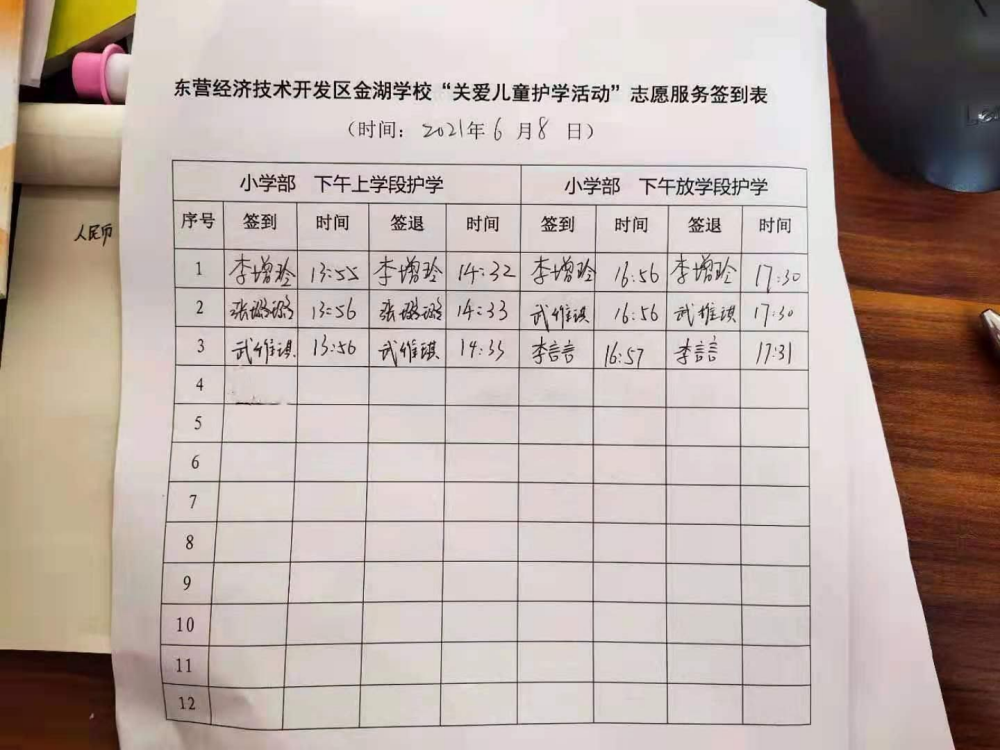 东营经济技术开发区金湖学校“关爱儿童护学活动”志愿服务签到表
（时间：2021年6月8日）
小学部 下午上学段护学 小学部 下午放学段护学
序号 签到 时间 签退 时间 签到 时间 签退 时间
1 李增玲 13:55 李增玲 14:32 李增玲 16:56 李增玲 17:30
2 张璐璐 13:56 张璐璐 14:33 武维琪 16:56 武维琪 17:30
3 武维琪 13:56 武维琪 14:33 李言言 16:57 李言言 17:31
4
5
6
7
8
9
10
11
12
人民币